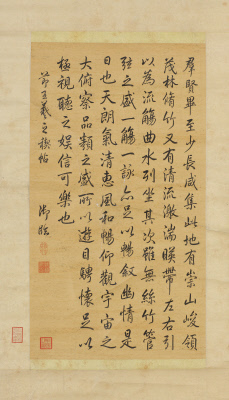 羣賢畢至少長咸集此地有崇山峻領
茂林脩竹又有清流激湍暎帶左右引
以為流觴曲水列坐其次雖無絲竹管
弦之盛一觴一詠亦足以暢敘幽情是
日也天朗氣清惠風和暢仰觀宇宙之
大俯察品類之盛所以遊目騁懷足以
極視聽之娛信可樂也
節王羲之稧帖
御臨